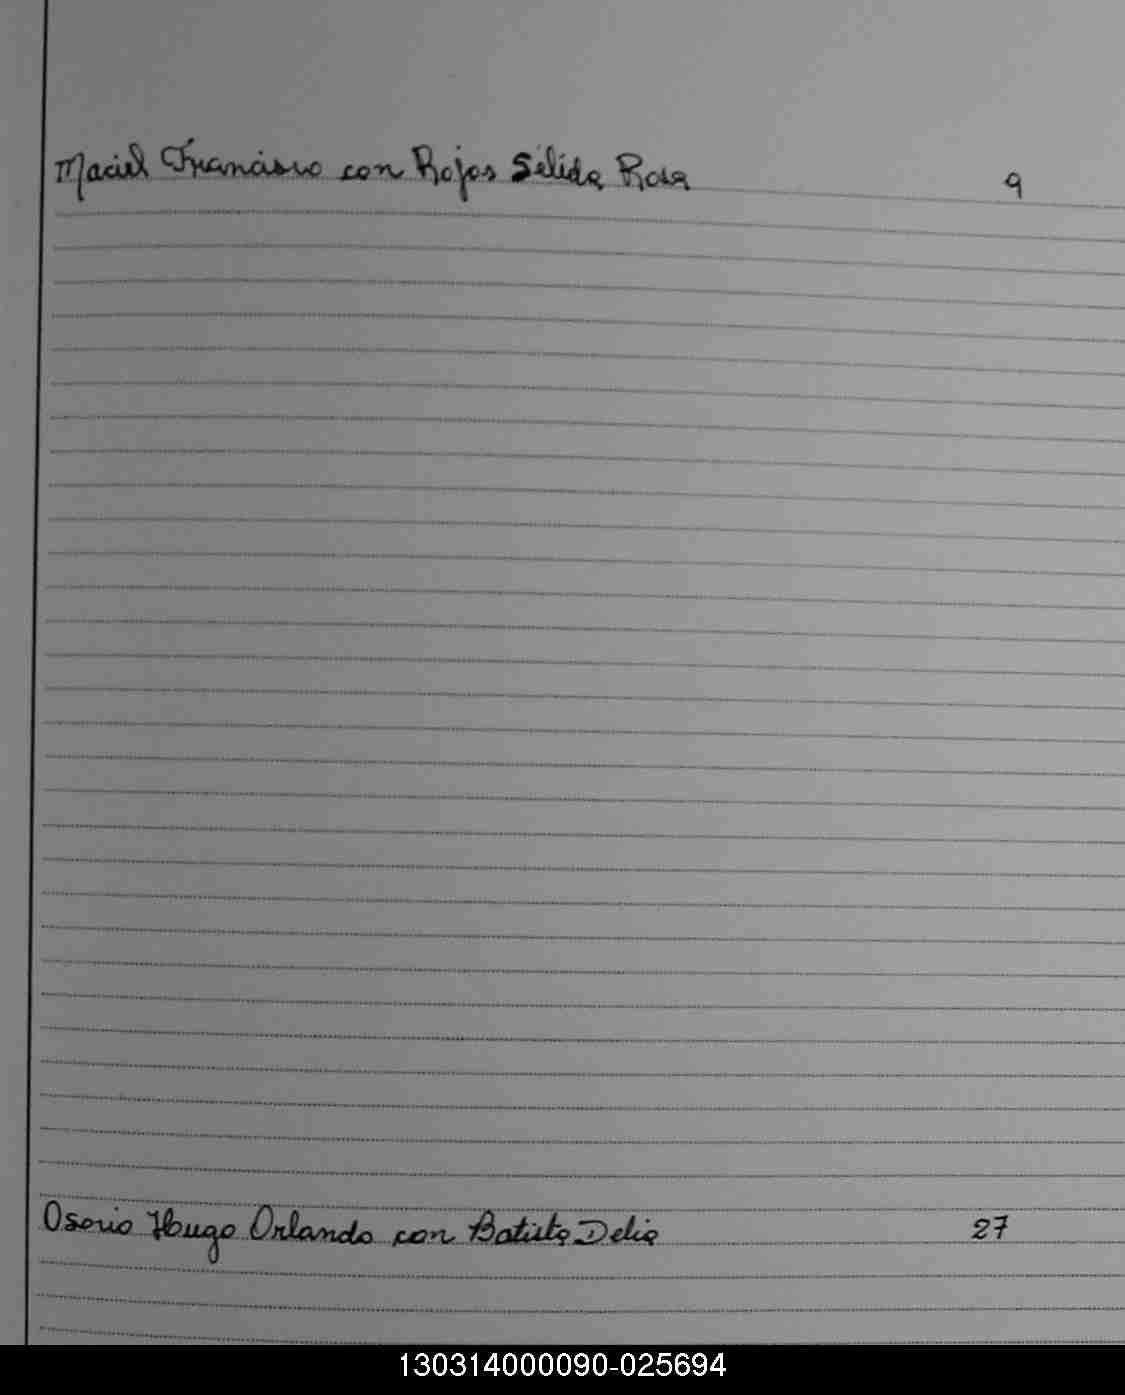 Maciel Francisco con Rojas Sélida Rosa 9
Osorio Hugo Orlando con Batista Delia 27
130314000090-025694